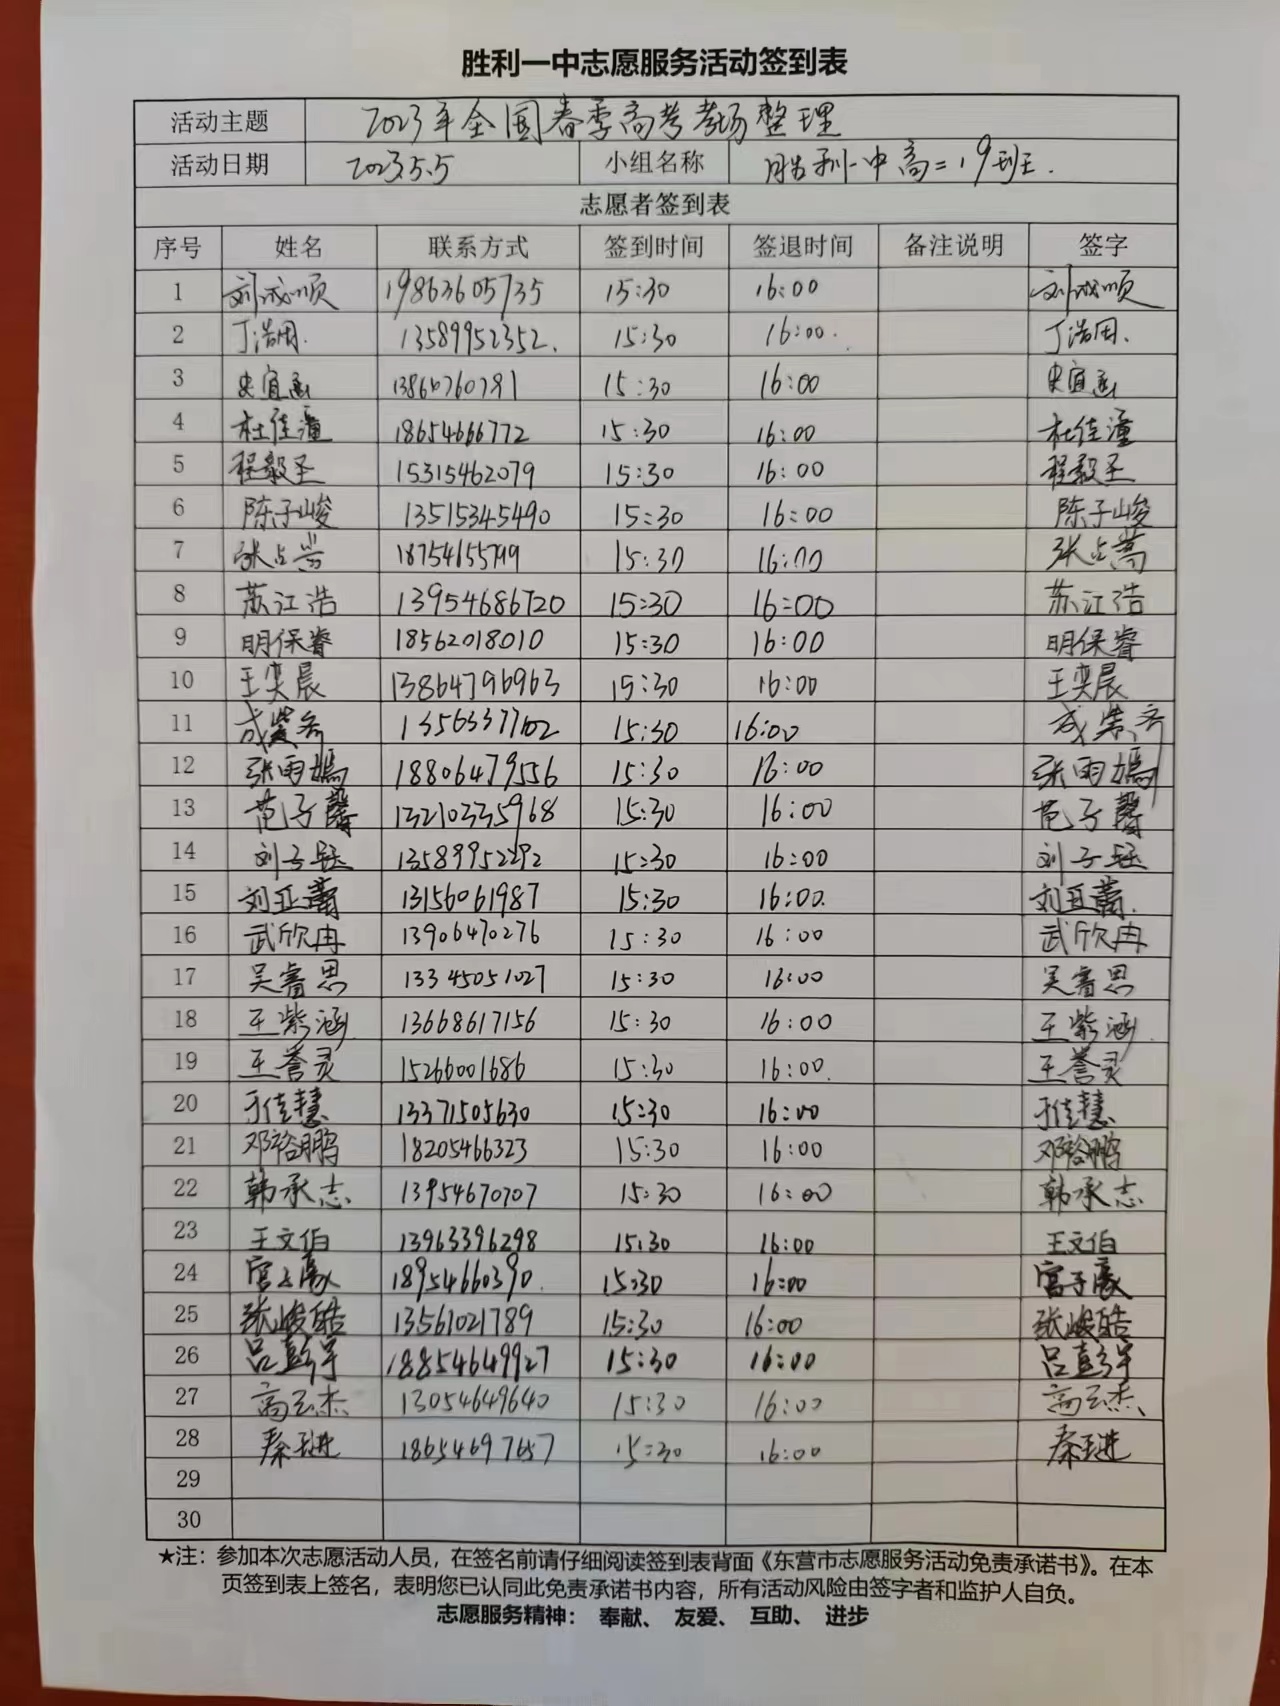 胜利一中志愿服务活动签到表
活动主题 2023年全国春季高考考场整理
活动日期 2023.5.5 小组名称 胜利一中高二.19班.
志愿者签到表
序号 姓名 联系方式 签到时间 签退时间 备注说明 签字
1 刘成顺 19863605735 15:30 16:00 刘成顺
2 丁浩 13589952352. 15:30 16:00. 丁浩
3 史宜函 15:30 16:00 史宜函
4 杜佳潼 18654666772 15:30 16:00 杜佳潼
5 程毅圣 15315462079 15:30 16:00 程毅圣
6 陈子峻 13515345490 15:30 16:00 陈子峻
7 张占嵩 15:30 16:00 张占嵩
8 苏江浩 13954686720 15:30 16:00 苏江浩
9 明保睿 18562018010 15:30 16:00 明保睿
10 王奕晨 13864796963 15:30 16:00 王奕晨
11 15:30 16:00
12 张雨嫣 18806479556 15:30 16:00 张雨嫣
13 范子馨 13210335968 15:30 16:00 范子馨
14 刘子钰 13589952292 15:30 16:00 刘子钰
15 刘亚蕾 13156061987 15:30 16:00. 刘亚蕾.
16 武欣冉 13906470276 15:30 16:00 武欣冉
17 吴睿思 13345051027 15:30 16:00 吴睿思
18 王紫涵 13668617156 15:30 16:00 王紫涵
19 王誉灵 15266001686 15:30 16:00. 王誉灵
20 于佳慧 13371505630 15:30 16:00 于佳慧
21 邓裕鹏 18205466323 15:30 16:00 邓裕鹏
22 韩承志 13954670707 15:30 16:00 韩承志
23 王文伯 13963396298 15:30 16:00 王文伯
24 宫子豪 18954660390. 15:30 16:00 宫子豪
25 张峻皓 13561021789 15:30 16:00 张峻皓
26 吕彭宇 18854649927 15:30 16:00 吕彭宇
27 高云杰 13054649640 15:30 16:00 高云杰
28 秦琎 18654697657 15:30 16:00 秦琎
29
30
★注：参加本次志愿活动人员，在签名前请仔细阅读签到表背面《东营市志愿服务活动免责承诺书》。在本
页签到表上签名，表明您已认同此免责承诺书内容，所有活动风险由签字者和监护人自负。
志愿服务精神： 奉献、 友爱、 互助、 进步